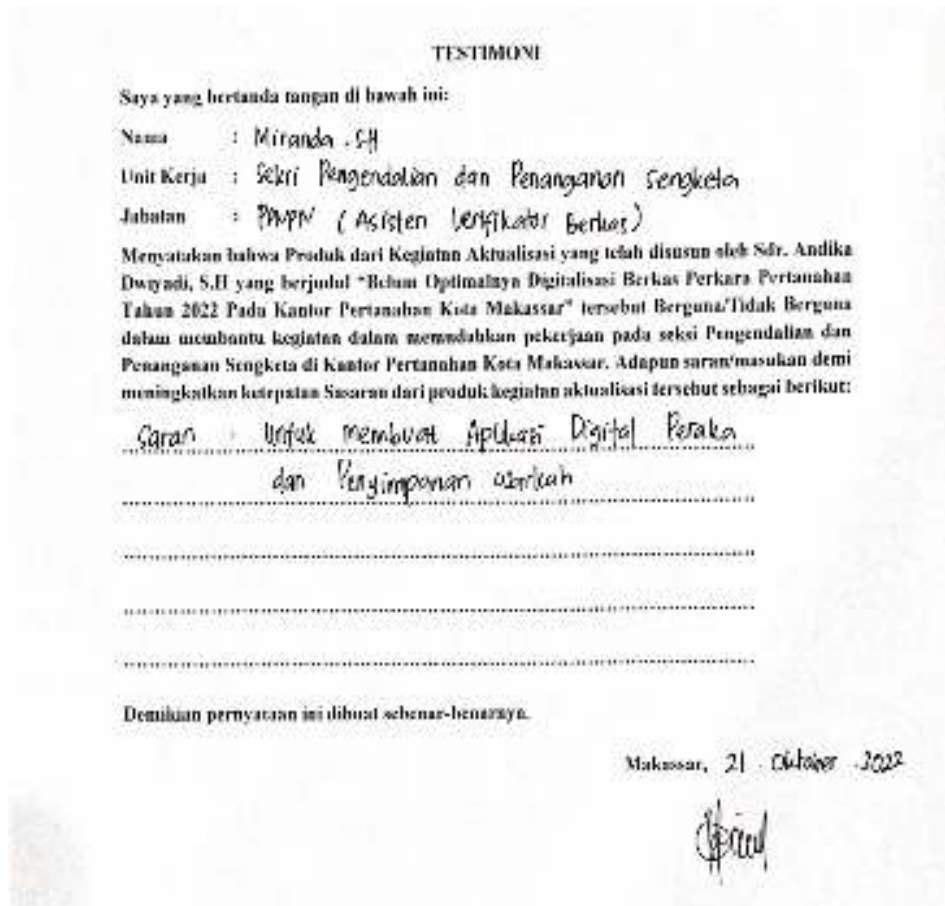 TESTIMONI
Saya yang bertanda tangan di bawah ini:
Nama : Miranda . SH
Unit Kerja : Seksi Pengendalian dan Penanganan Sengketa
Jabatan : PPNPN (Asisten Verifikator Berkas)
Menyatakan bahwa Produk dari Kegiatan Aktualisasi yang telah disusun oleh Sdr. Andika
Dwiyadi, S.H yang berjudul "Belum Optimalnya Digitalisasi Berkas Perkara Pertanahan
Tahun 2022 Pada Kantor Pertanahan Kota Makassar" tersebut Berguna/Tidak Berguna
dalam membantu kegiatan dalam memudahkan pekerjaan pada seksi Pengendalian dan
Penanganan Sengketa di Kantor Pertanahan Kota Makassar. Adapun saran/masukan demi
meningkatkan ketepatan Sasaran dari produk kegiatan aktualisasi tersebut sebagai berikut:
Saran : Untuk membuat Aplikasi Digital
dan Penyimpanan warkah
Demikian pernyataan ini dibuat sebenar-benarnya.
Makassar, 21 Oktober 2022